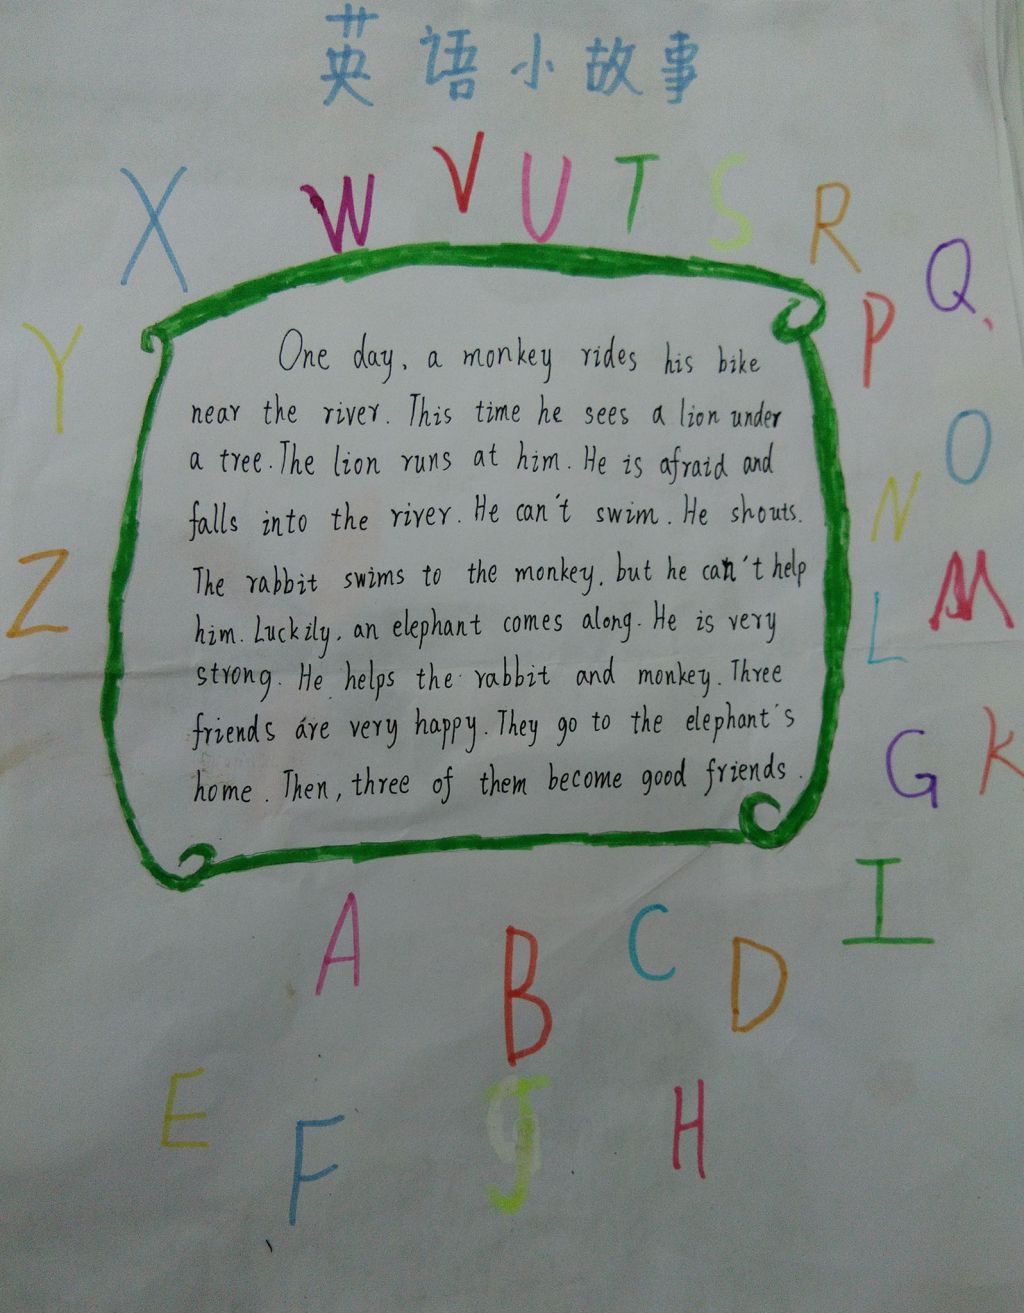 英语小故事
X W V U T S R
Q
P
Y
O
N
Z
M
L
G K
I
One day, a monkey rides his bike
near the river. This time he sees a lion under
a tree. The lion runs at him. He is afraid and
falls into the river. He can't swim. He shouts.
The rabbit swims to the monkey, but he can't help
him. Luckily, an elephant comes along. He is very
strong. He helps the rabbit and monkey. Three
friends are very happy. They go to the elephant's
home. Then, three of them become good friends.
A B C D
E F J H